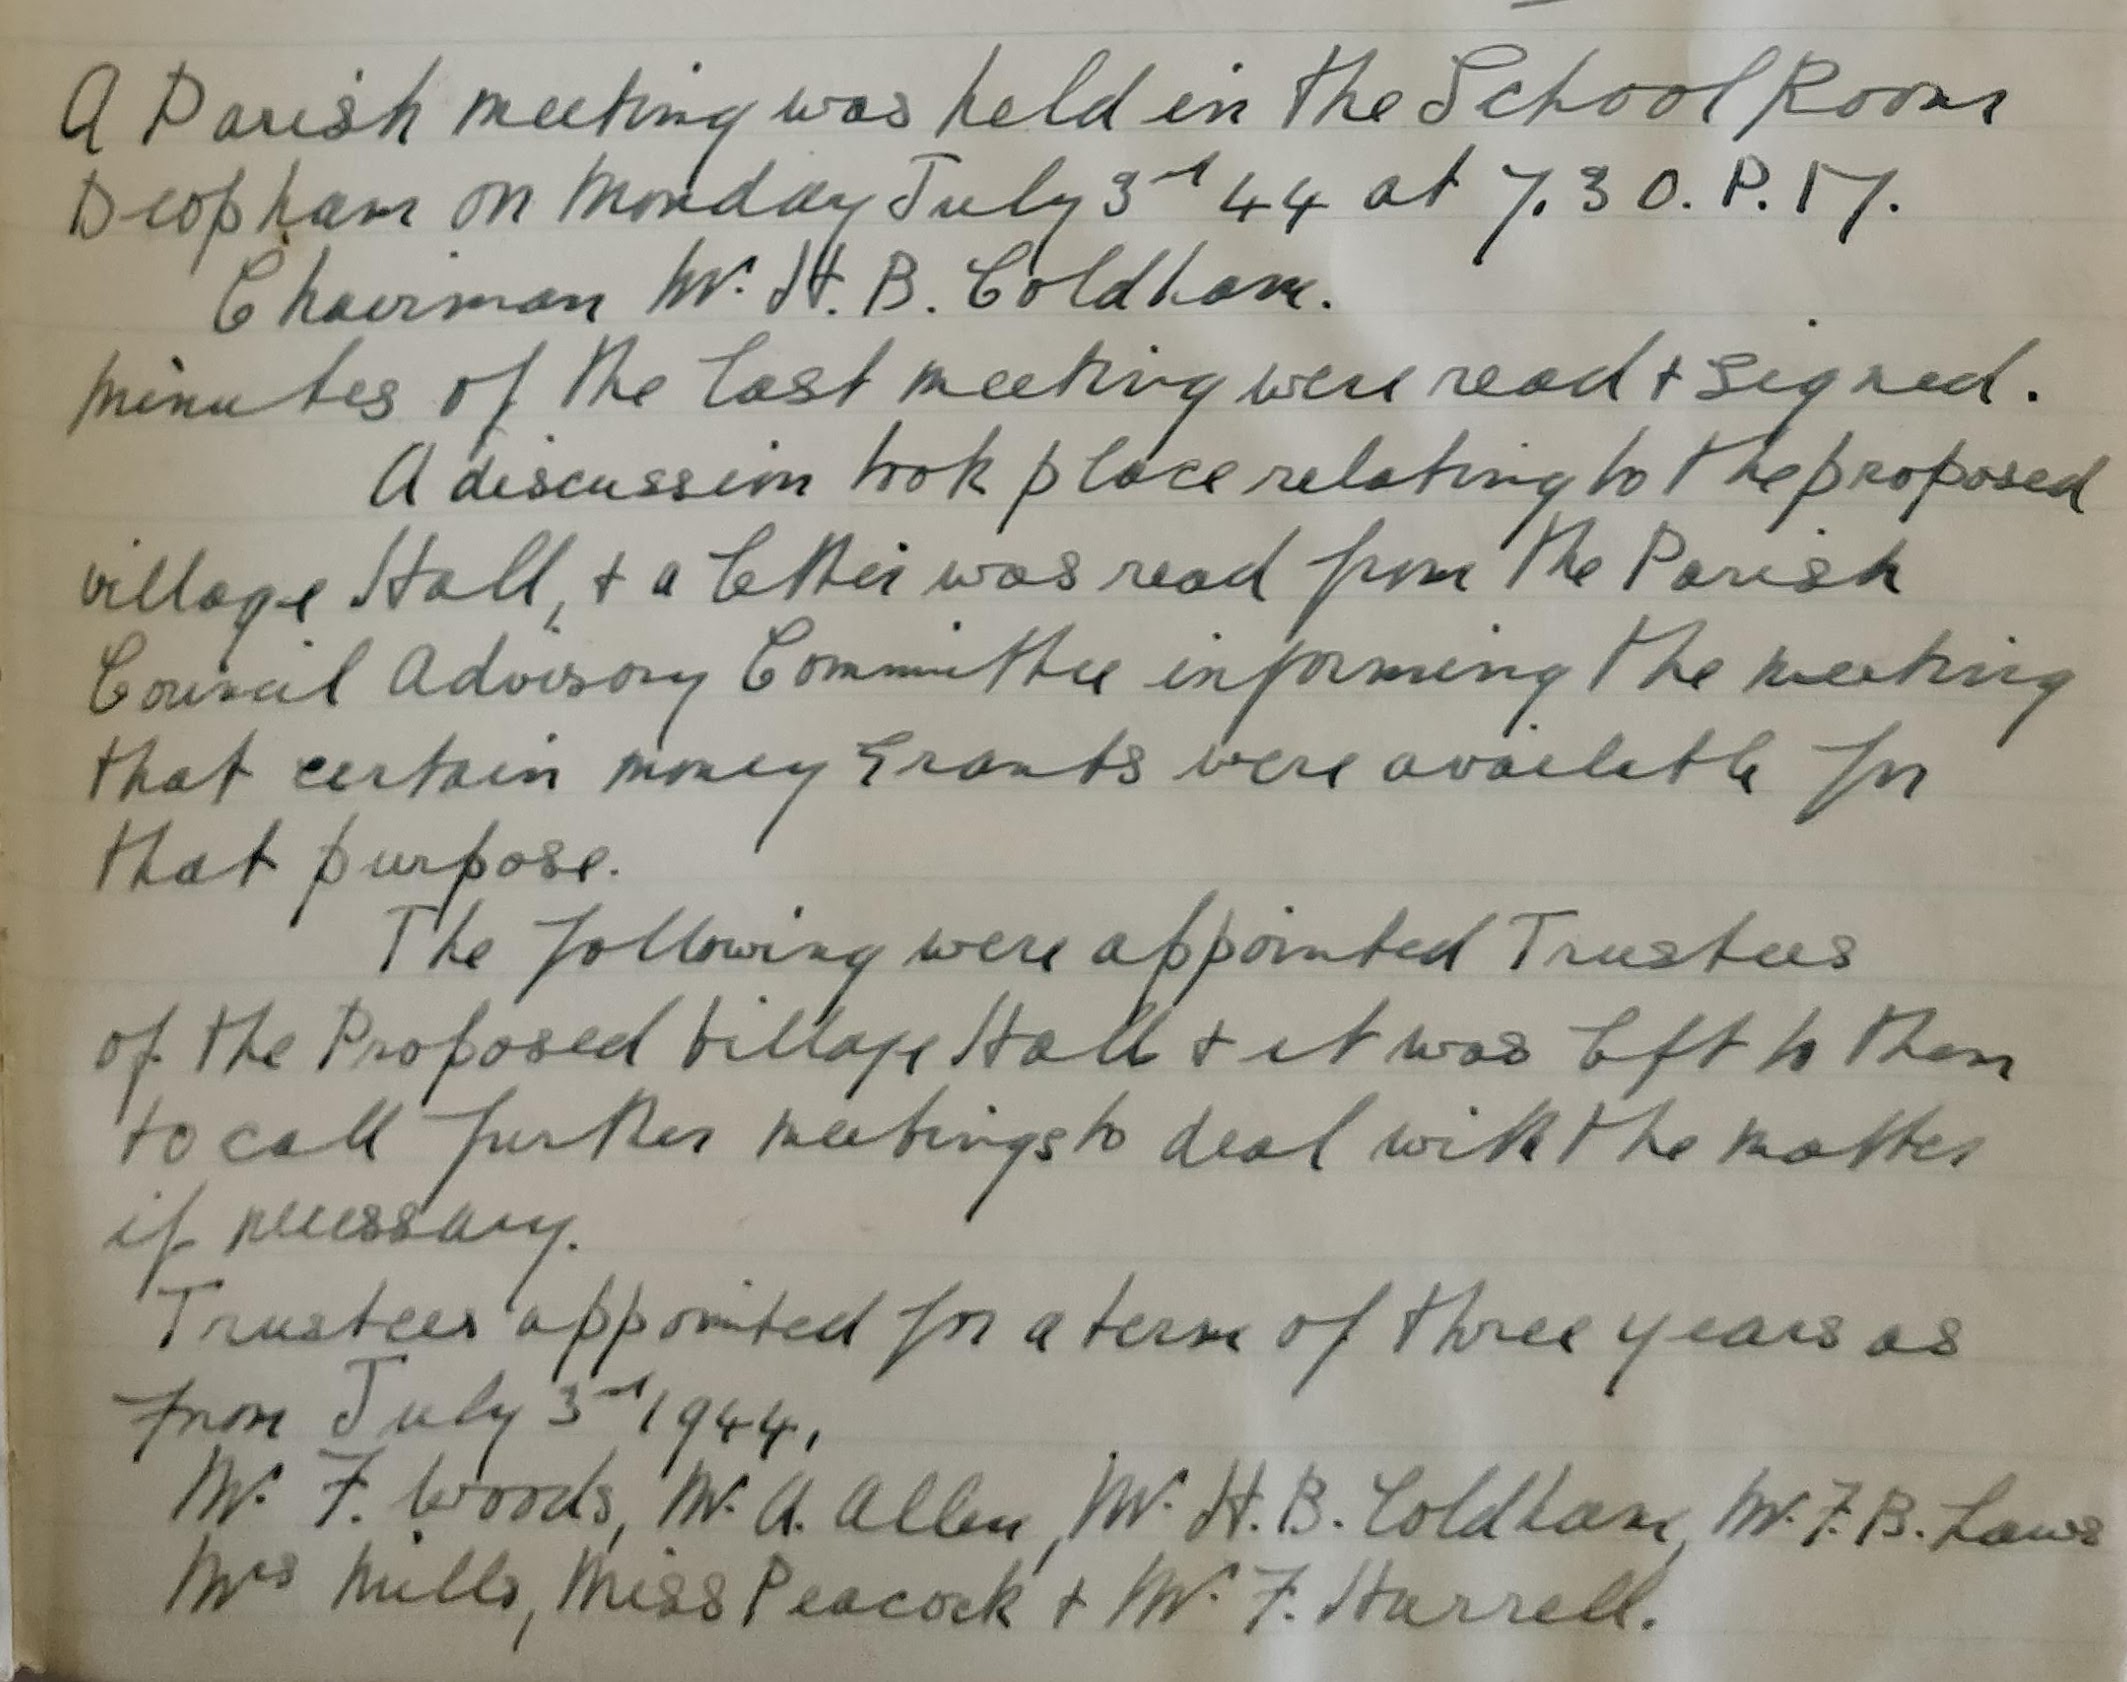 A Parish meeting was held in the School Room
Deopham on Monday July 3rd 44 at 7.30. P.M.
Chairman Mr. H. B. Coldham.
Minutes of the last meeting were read + signed.
A discussion took place relating to the proposed
village Hall, + a letter was read from the Parish
Council Advisory Committee informing the meeting
that certain money Grants were available for
that purpose.
The following were appointed Trustees
of the Proposed Village Hall + it was left to them
to call further meetings to deal with the matter
if necessary.
Trustees appointed for a term of three years as
from July 3rd 1944,
Mr. F. Woods, Mr. A. Allen, Mr. H. B. Coldham, Mr. F. B. Laws
Mrs Mills, Miss Peacock + Mr. F. Harrell.